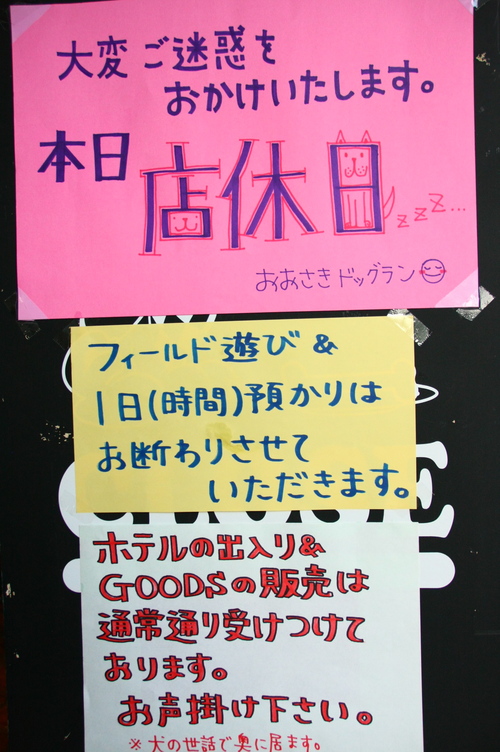 大変ご迷惑を
おかけいたします。
本日店休日
zzz...
おおさきドッグラン
フィールド遊び&
1日(時間)預かりは
お断わりさせて
いただきます。
ホテルの出入り&
GOODSの販売は
通常通り受けつけて
おります。
お声掛け下さい。
※犬の世話で奥に居ます。